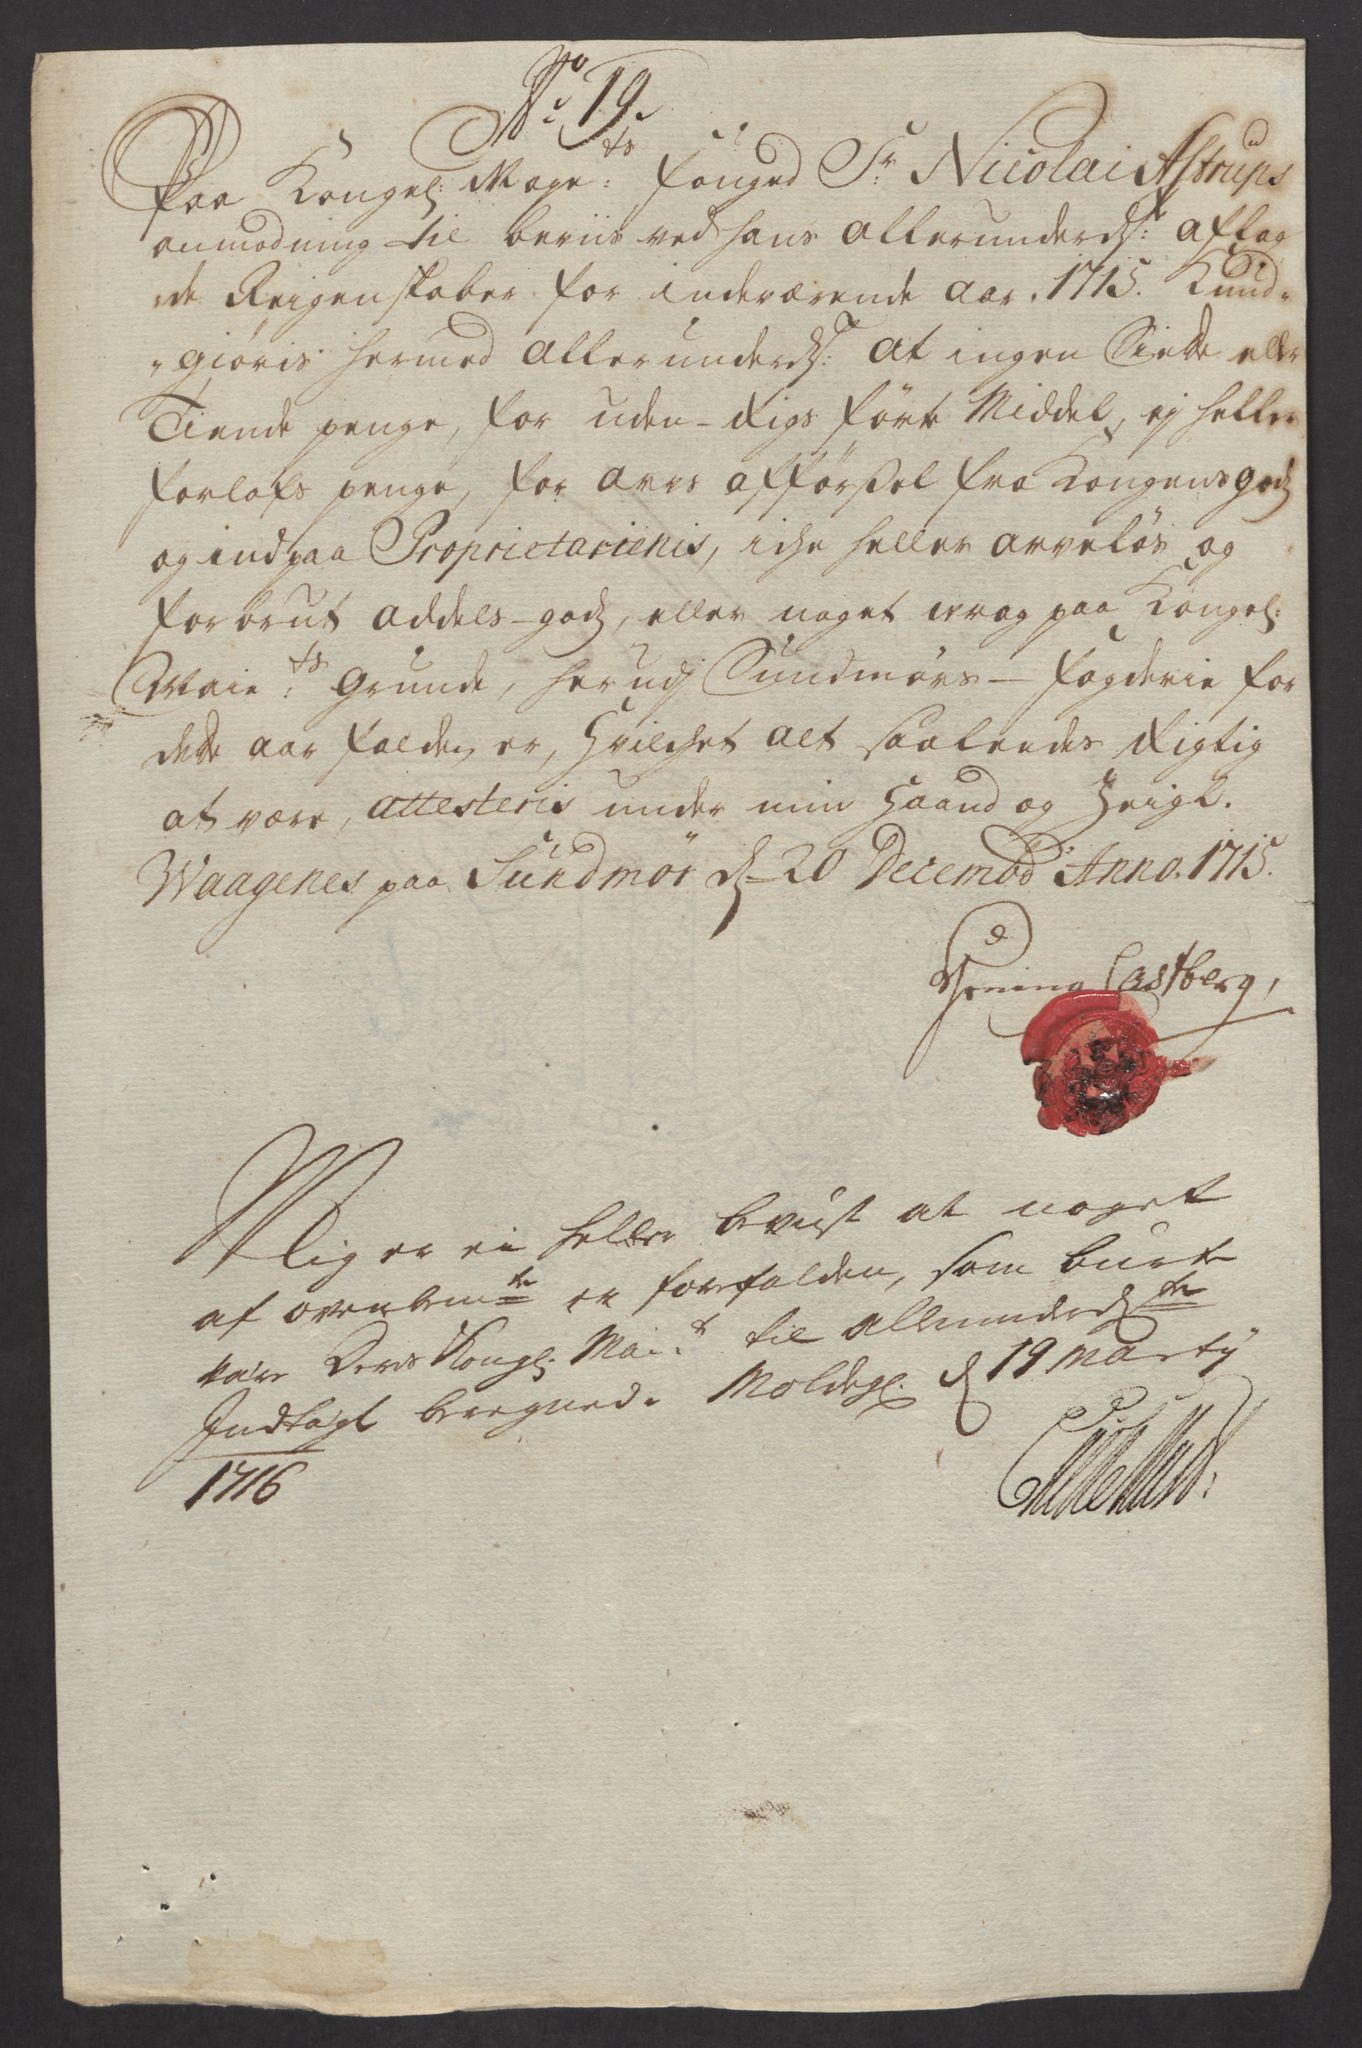 No. 19.
Paa Kongel: Maye:ts Fouged Sr. Nicolai Astrups
anmodning til beviis ved hans allerunderd: aflag
de Reigenskaber for indeværende aar. 1715. Kund-
-giöris hermed allerunderd: at ingen Siette eller
Tiende penge, for uden-Rigs förte Middel, ej heller
forlofs penge, for arvs afförsel fra Kongens godz
og ind paa Proprietariernis, icke heller arvelös og
forbrut addels-godz, eller noget wrag paa Kongel:
Maie:ts Grunde, her udj Sundmörs-Fogderie for
dette aar falden er, Hvilchet alt saaledes Rigtig
at være, attesteris under min Haand og Zeigl.
Waagenes paa Sundmör d. 20 Decembr Anno. 1715.
Hening Castberg,
Mig er ei heller bevist at noget
af ovenbemte er forfalden, som burte
være Deris Kongl: Mai:t til allerunderdte
Indtægt beregned. Moldegl. d 19 Marty
1716